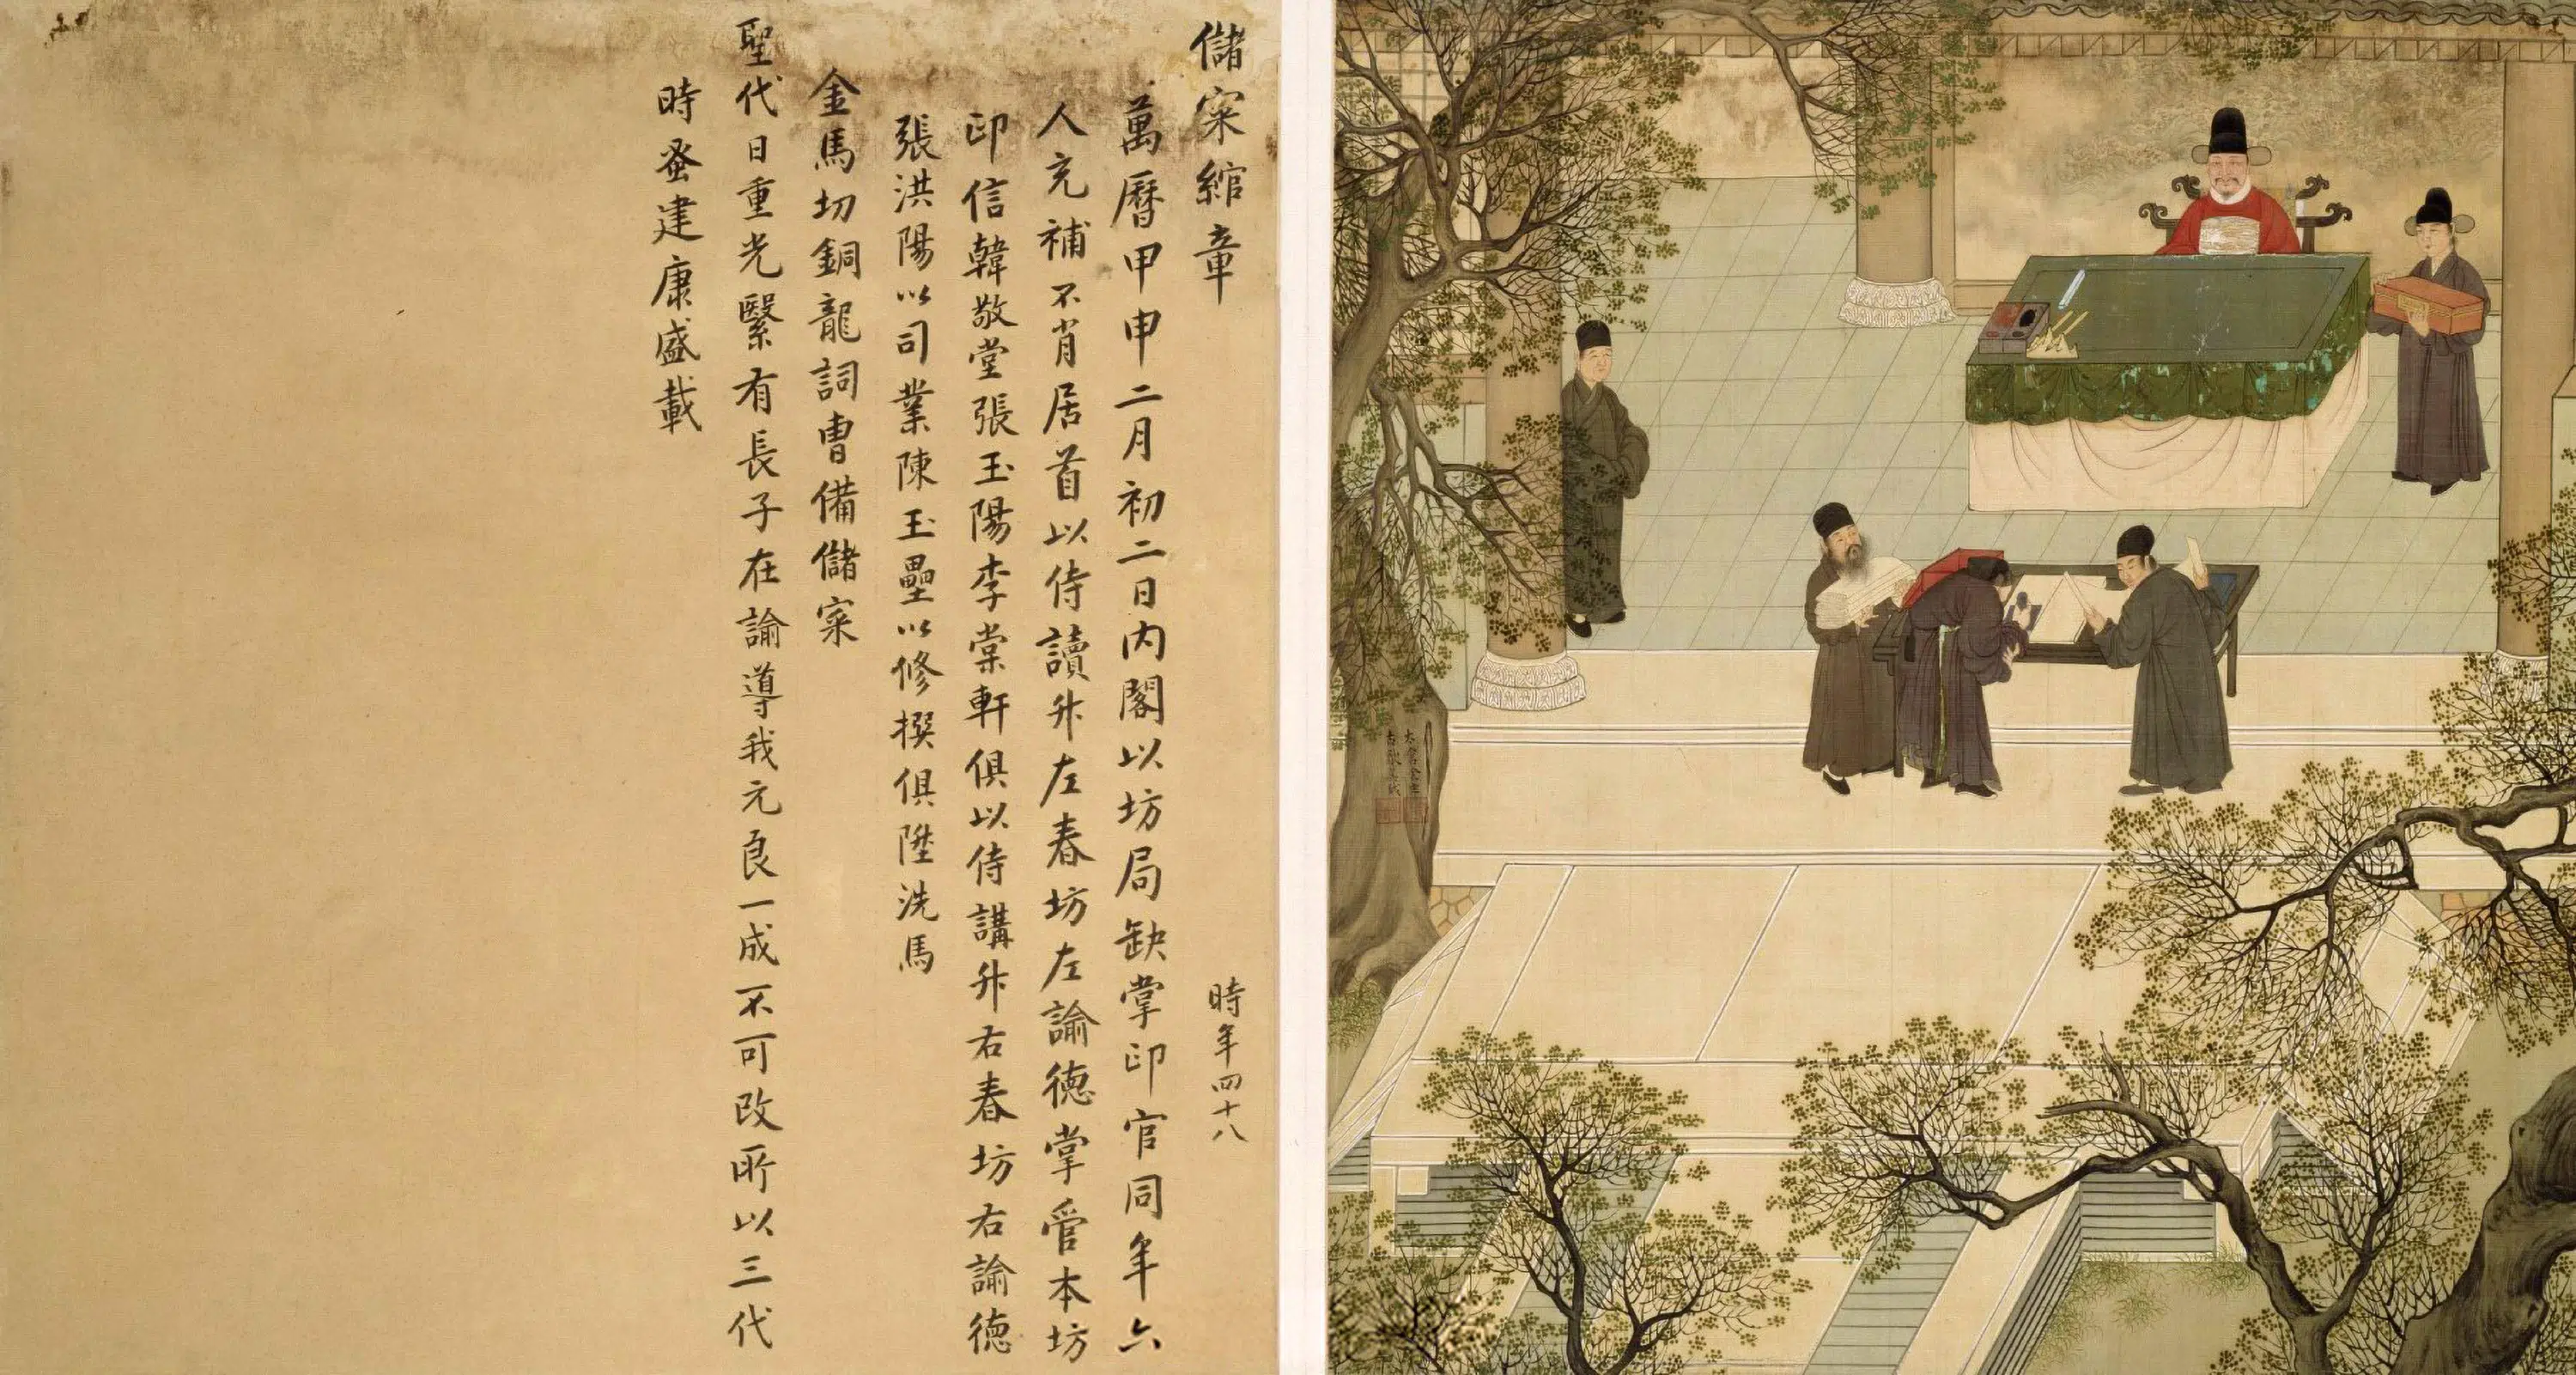 儲寀綰章
時年四十八
萬曆甲申二月初二日内閣以坊局缺掌印官同年六
人充補不肖居首以侍讀升左春坊左諭德掌管本坊
印信韓敬堂張玉陽李棠軒俱以侍講升右春坊右諭德
張洪陽以司業陳玉壘以修撰俱陞洗馬
金馬切銅龍詞曹備儲寀
聖代日重光繄有長子在諭導我元良一成不可改所以三代
時蚤建康盛載